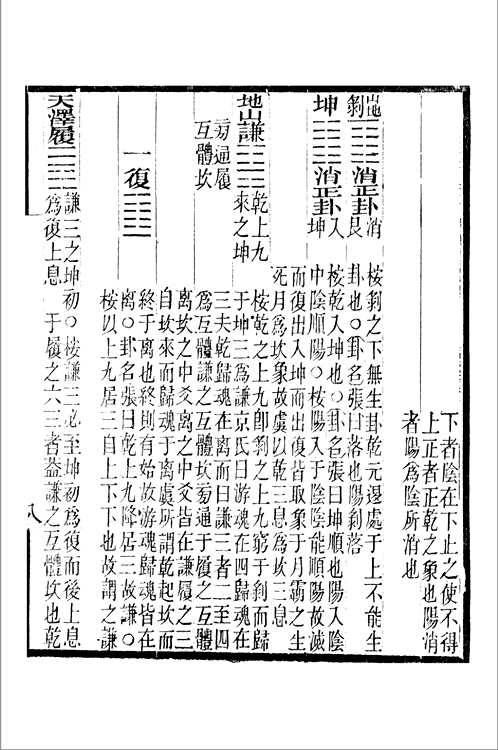 下者陰在下止之使不得
上正者正乾之象也陽消
者陽爲陰所消也
剝 消正卦 消艮
桉剝之下無生卦乾元還處于上不能生
卦也○卦名張曰落也陽剝落
坤 消正卦 入坤
桉乾入坤也○卦名張曰坤順也陽入陰
中陰順陽○桉陽入于陰陰能順陽故滅
而復出入坤而出復皆取象于月霸之生
死月爲坎象故虞以乾三息爲坎三息
地山謙 乾上九來之坤
桉乾之上九卽剝之上九窮于剝而歸
于坤三爲謙京氏曰游魂在四歸魂在
三夫乾歸魂在離而曰謙三者二至四
旁通履
互體坎
爲互體謙之互體坎旁通于履之互體
離坎之中爻離之中爻皆在謙履之三
自坎來而歸魂于離虞所謂乾起坎而
終于離也終則有始故游魂歸魂皆在
一復
離○卦名張曰乾上九降居三故謙○
桉以上九居三自上下下也故謂之謙
天澤履 謙三之坤初○桉謙三必至坤初爲復而後上息
爲復上息 于履之六三者葢謙之互體坎也乾
八